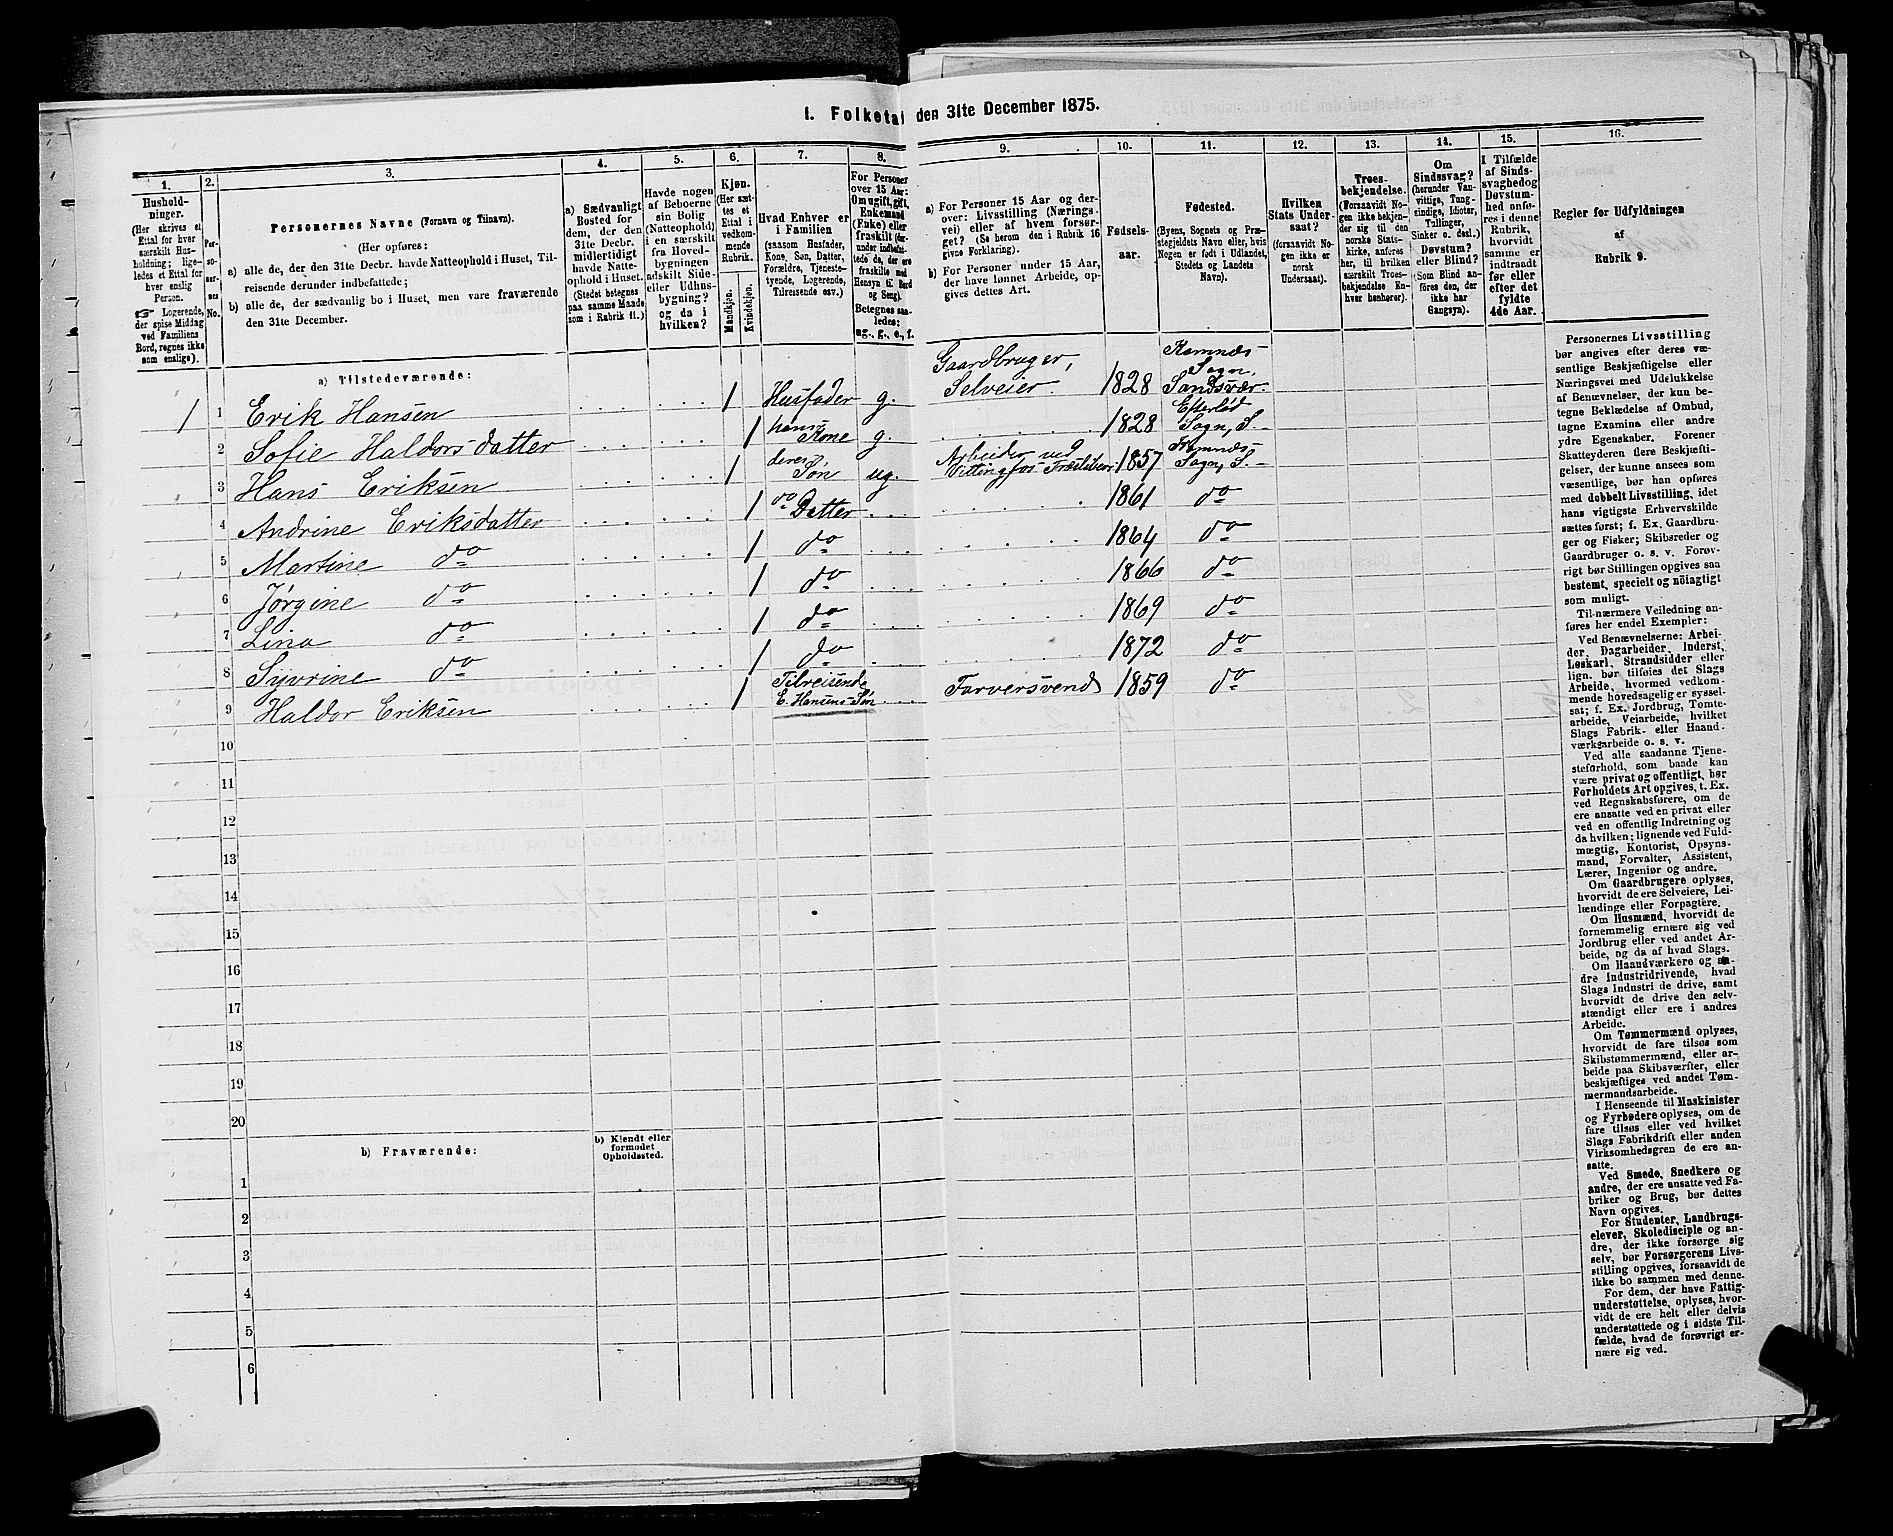 I. Folketal den 31te December 1875.
1.
2.
3.
4.
5.
6.
7.
8.
9.
10.
11.
12.
13.
14.
15.
16.
Husholdninger.
(Her skrives et
Ettal for hver
særskilt Husholdning;
ligeledes et Ettal for
hver enslig
Person.
Logerende,
der spise Middag
ved Familiens
Bord, regnes ikke
som enslige).
Personernes No.
Personernes Navne (Fornavn og Tilnavn).
(Her opføres:
a) alle de, der den 31te Decbr. havde Natteophold i Huset, Tilreisende derunder indbefattede;
b) alle de, der sædvanlig bo i Huset, men vare fraværende
den 31te December.
a) Sædvanligt
Bosted for
dem, der den
31te Decbr.
midlertidigt
havde Natteophold i Huset.
(Stedet betegnes
paa samme Maade
som i Rubrik 11.)
Havde nogen
af Beboerne
sin Bolig
(Natteophold)
i en særskilt
fra Hovedbygningen
adskilt Side-
eller Udhusbygning?
og da i
hvilken?
Kjøn.
(Her sættes et
Ettal i
vedkommende
Rubrik.
Mandkjøn.
Kvindekjøn.
Hvad Enhver er
i Familien
(saasom Husfader,
Kone, Søn, Datter,
Forældre, Tjenestetyende, Logerende,
Tilreisende osv.)
For Personer
over 15 Aar:
Om ugift, gift,
Enkemand
(Enke) eller
fraskilt
Betegnes saaledes:
ug., g., e., f.
a) For Personer 15 Aar og derover: Livsstilling (Næringsvei) eller af hvem forsørget? (Se herom den i Rubrik 16
givne Forklaring).
b) For Personer under 15 Aar,
der have lønnet Arbeide, opgives dettes Art.
Fødselsaar.
Fødested.
(Byens, Sognets og Præstegjeldets Navn eller, hvis
Nogen er født i Udlandet,
Stedets og Landets
Navn).
Hvilken
Stats Undersaat?
(forsaavidt Nogen ikke er
norsk
Undersaat).
Troesbekjendelse.
(Forsaavidt Nogen ikke bekjender sig til den
norske Statskirke, anføres
her, til hvilken
særskilt Troesbekjendelse Enhver henhører).
Om
Sindssvag?
(herunder Vanvittige, Tungsindige, Idioter,
Tullinger,
Sinker o. desl.)
Døvstum?
eller Blind?
(Som Blind anføres den, der ikke har
Gangsyn).
I Tilfælde
af Sindssvaghed og
Døvstumhed anføres i denne
Rubrik,
hvorvidt
samme er
indtraadt
før eller
efter det
fyldte
4de Aar.
Regler for Udfyldningen
af
Rubrik 9.
a) Tilstedeværende:
1 1 Erik Hansen 1 Husfader g. Gaardbruger, Selveier 1828 Komnæs Sogn, Sandsvær.
2 Sofie Haldorsdatter 1 hans Kone g. 1828 Efteløt Sogn, S.
3 Hans Eriksen 1 deres Søn ug. Arbeider ved Vittingfos Træsliberi 1857 Komnæs Sogn, S.
4 Andrine Eriksdatter 1 do Datter 1861 do
5 Martine do 1 do 1864 do
6 Jørgine do 1 do 1866 do
7 Lina do 1 do 1869 do
8 Syvrine do 1 do 1872 do
9 Haldor Eriksen 1 Tilreisende E. Hansens Søn Farversvend 1859 do
10
11
12
13
14
15
16
17
18
19
20
b) Fraværende:
b) Kjendt eller
formodet
Opholdssted.
1
2
3
4
5
6
Personernes Livsstilling
bør angives efter deres væsentlige Beskjæftigelse eller
Næringsvei med Udelukkelse
af Benævnelser, der kun betegne Beklædelse af Ombud,
tagne Examina eller andre
ydre Egenskaber. Forener
Skatteyderen flere Beskjæftigelser, der kunne ansees som
væsentlige, bør han opføres
med dobbelt Livsstilling, idet
hans vigtigste Erhvervskilde
sættes først; f. Ex. Gaardbruger og Fisker; Skibsreder og
Gaardbruger o. s. v. Forøvrigt bør Stillingen opgives saa
bestemt, specielt og nöiagtigt
som muligt.
Til nærmere Veiledning anføres her endel Exempler:
Ved Benævnelserne: Arbeider, Dagarbeider, Inderst,
Løskarl, Strandsidder eller
lign. bør tilføies det Slags
Arbeide, hvormed vedkommende hovedsagelig er sysselsat; f. Ex. Jordbrug, Tomtearbeide, Veiarbeide, hvilket
Slags Fabrik- eller Haandværksarbeide o. s. v.
Ved alle saadanne Tjenesteforhold, som baade kan
være privat og offentligt, bør
Forholdets Art opgives, t. Ex.
ved Regnskabsførere, om de
ere ansatte ved en privat eller
ved en offentlig Indretning og
da hvilken; lignende ved Fuldmægtig, Kontorist, Opsynsmand, Forvalter, Assistent,
Lærer, Ingeniør og andre.
Om Gaardbrugere oplyses,
hvorvidt de ere Selveiere, Leilændinge eller Forpagtere.
Om Husmænd, hvorvidt de
fornemmelig ernære sig ved
Jordbrug eller ved andet Arbeide, og da af hvad Slags.
Om Haandværkere og andre Industridrivende, hvad
Slags Industri de drive, samt
hvorvidt de drive den selvstændigt eller ere i andres
Arbeide.
Om Tømmermænd oplyses,
hvorvidt de fare tilsøs som
Skibstømmermænd, eller arbeide paa Skibsværfter, eller
beskjæftiges ved andet Tømmermandsarbeide.
I Henseende til Maskinister
og Fyrbødere oplyses, om de
fare tilsøs eller ved hvilket
Slags Fabrikdrift eller anden
Virksomhedsgren de ere ansatte.
Ved Smede, Snedkere og
andre, der ere ansatte ved Fabriker og Brug, bør dettes
Navn opgives.
For Studenter, Landbrugselever, Skoledisciple og andre, der ikke forsørge sig
selv, bør Forsørgerens Livsstilling opgives, forsaavidt de
ikke bo sammen med denne.
For dem, der have Fattigunderstøttelse, oplyses, hvorvidt de ere helt eller delvis
understøttede og i sidste Tilfælde, hvad de forøvrigt ernære sig ved.